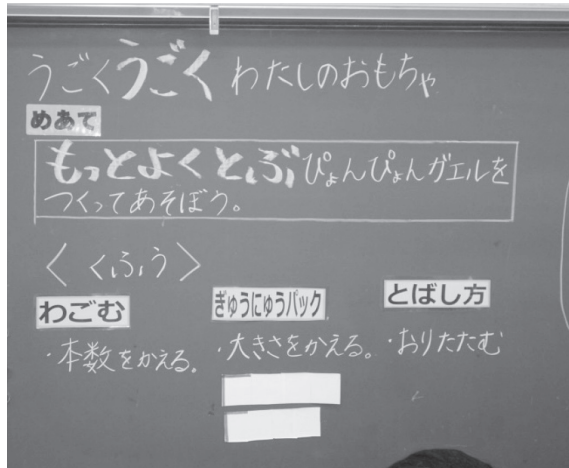 うごくうごくわたしのおもちゃ
めあて
もっとよくとぶぴょんぴょんガエルを
つくってあそぼう。
〈くふう〉
わごむ
・本数をかえる。
ぎゅうにゅうパック
・大きさをかえる。
とばし方
・おりたたむ